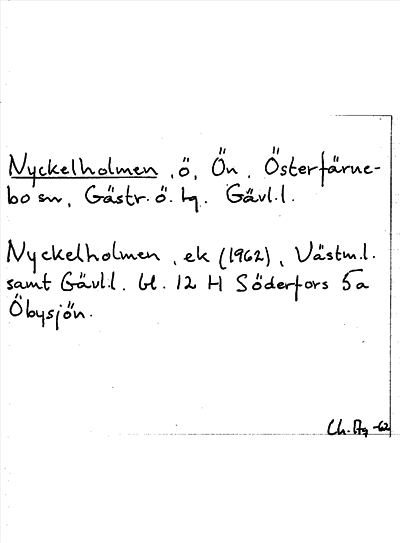 Nyckelholmen, ö, Ön, Österfärne-
bo sn, Gästr. ö. tg. Gävl.l.
Nyckelholmen, ek (1962), Västm.l.
samt Gävl.l. bl. 12 H Söderfors 5a
Öbysjön.
Ch. Åg -62